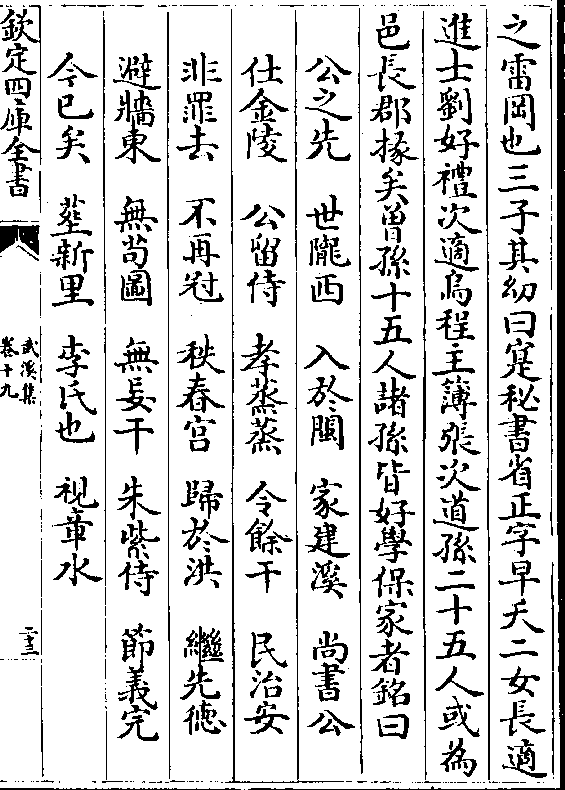 之雷岡也三子其幼曰寔秘書省正字早夭二女長適
進士劉好禮次適烏程主簿張次道孫二十五人或為
邑長郡掾矣曽孫十五人諸孫皆好學保家者銘曰
公之先　世隴西　入於閩　家建溪　尚書公
仕金陵　公留侍　孝蒸蒸　令餘干　民治安
非罪去　不再冠　秩春宫　歸於洪　繼先徳
避牆東　無苟圖　無妄干　朱紫侍　節義完
今已矣　塟新里　李氏也　視章水
欽定四庫全書
武溪集
卷十九
二十三